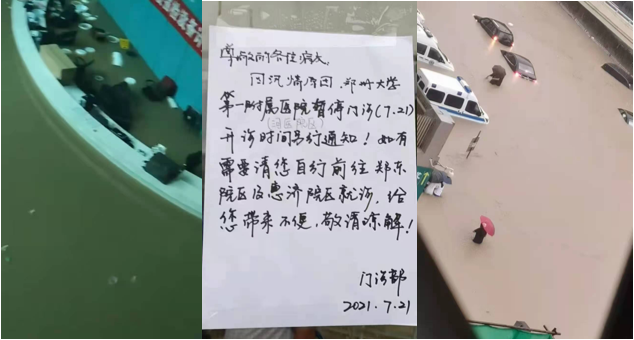 尊敬的各位病友,
因汛情原因,郑州大学
第一附属医院暂停门诊(7.21)
(河医院区)
开诊时间另行通知!如有
需要请您自行前往郑东
院区及惠济院区就诊,给
您带来不便,敬请谅解!
门诊部
2021.7.21